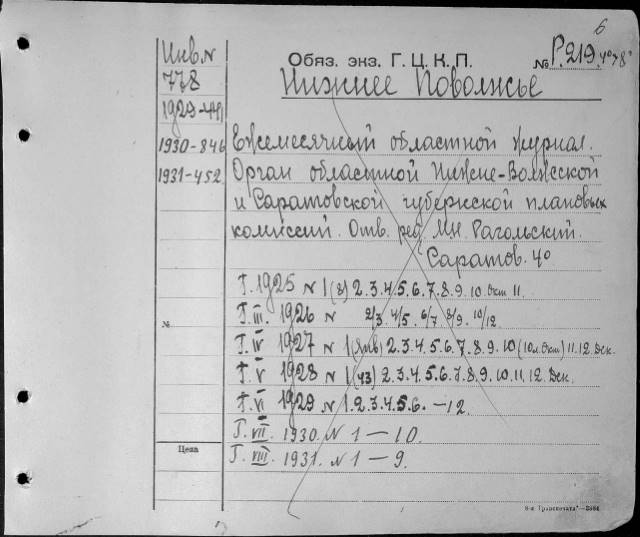 6
Инв. N
778
1929-441
1930-846
1931-452
Обяз. экз. Г. Ц. К. П. № P.219. 4°78°
Нижнее Поволжье
Ежемесячный областной журнал.
Орган областной Нижне-Волжской
и Саратовской губернской плановых
комиссий. Отв. ред. Мих. Рагольский.
Саратов. 4°
Г. 1925 N 1(8) 2.3.4.5.6.7.8.9.10. Окт 11.
Г. III. 1926 N 2/3. 4/5. 6/7. 8/9. 10/12.
Г. IV 1927 N 1(Янв) 2.3.4.5.6.7.8.9.10 (10л. Окт) 11.12. Дек.
Г. V 1928 N 1(43) 2.3.4.5.6.7.8.9.10.11.12. Дек.
Г. VI 1929 N 1.2.3.4.5.6. —12.
Г. VII. 1930. N 1 — 10.
Г. VIII. 1931. N 1 — 9.
№
Цена
8-я „Транспечать"—3864